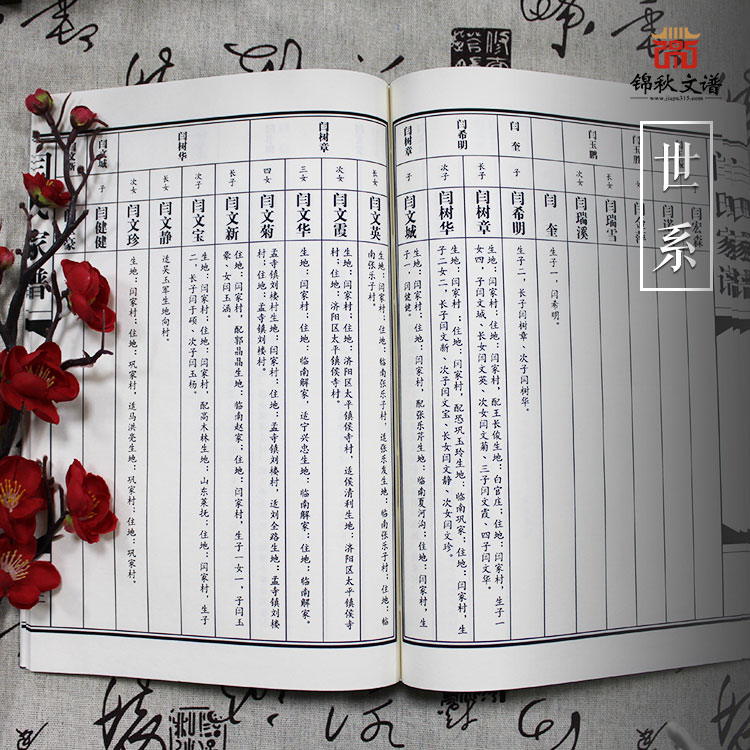 锦秋文谱
www.jiapu315.com
世系
闫玉胜
闫宏森
闫玉鹏
女
闫瑞雪
子
闫瑞溪
闫奎
生子一，闫希明。
闫奎
子
闫希明
生子二，长子闫树章、次子闫树华。
闫希明
长子
闫树章
生地：闫家村；住地：闫家村，配王长俊生地：白官庄；住地：闫家村，生子一
女四，子闫文城、长女闫文英、次女闫文菊、三子闫文霞、四子闫文华。
次子
闫树华
生地：闫家村；住地：闫家村，配恐巩玉玲生地：临南巩家；住地：闫家村，生
子二女二，长子闫文新、次子闫文宝、长女闫文静、次女闫文珍。
闫树章
子
闫文城
生地：闫家村；住地：闫家村，配张乐芹生地：临南夏河沟；住地：闫家村，生
子一，闫健健。
闫树章
长女
闫文英
生地：闫家村；住地：临南张乐子村，适张乐发生地：临南张乐子村；住地：临
南张乐子村。
次女
闫文霞
生地：闫家村；住地：济阳区太平镇侯寺村，适侯清利生地：济阳区太平镇侯寺
村；住地：济阳区太平镇侯寺村。
三女
闫文华
生地：闫家村；住地：临南解家，适宁兴忠生地：临南解家；住地：临南解家。
四女
闫文菊
孟寺镇刘楼村生地：闫家村；住地：孟寺镇刘楼村，适刘全路生地：孟寺镇刘楼
村；住地：孟寺镇刘楼村。
闫树华
长子
闫文新
生地：闫家村；住地：闫家村，配郭晶晶生地：临南赵家；住地：闫家村，生子一女一，子闫玉
豪、女闫玉涵。
次子
闫文宝
生地：闫家村；住地：闫家村，配高木林生地：山东莱抚；住地：闫家村，生子
二，长子闫于硕、次子闫玉杨。
长女
闫文静
适吴玉军生地向村。
次女
闫文珍
生地：闫家村；住地：巩家村，适马洪亮生地：巩家村；住地：巩家村。
闫文城
子
闫健健